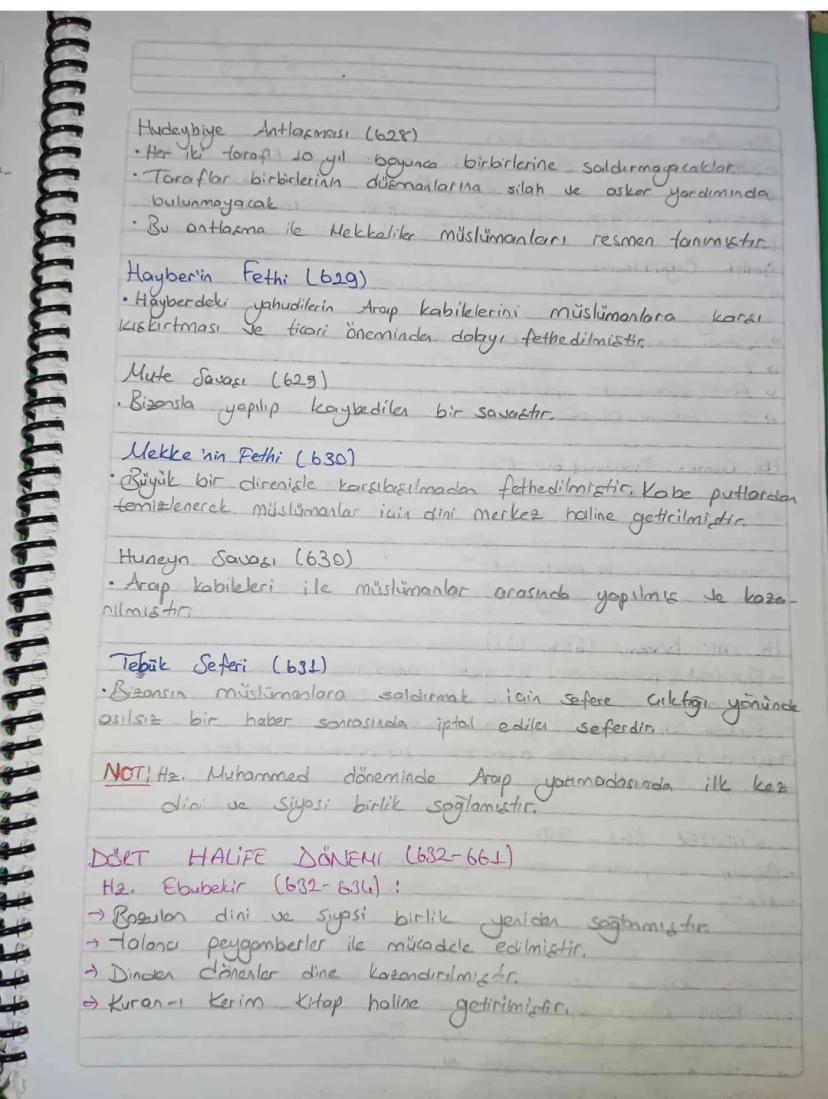 Hudeybiye Antlaşması (628)
• Her iki taraf 10 yıl boyunca birbirlerine saldırmayacaklar.
• Taraflar birbirlerinin düşmanlarına silah ve asker yardımında
bulunmayacak
• Bu antlaşma ile Mekkeliler müslümanları resmen tanımıştır.
Hayber'in Fethi (629)
• Hayberdeki yahudilerin Arap kabilelerini müslümanlara karşı
kışkırtması ve ticari öneminden dolayı fethedilmiştir.
Mute Savaşı (629)
• Bizansla yapılıp kaybedilen bir savaştır.
Mekke'nin Fethi (630)
• Büyük bir direnişle karşılaşılmadan fethedilmiştir. Kabe putlardan
temizlenerek müslümanlar için dini merkez haline getirilmiştir.
Huneyn Savaşı (630)
• Arap kabileleri ile müslümanlar arasında yapılmış ve kaza-
nılmıştır.
Tebük Seferi (631)
• Bizansın müslümanlara saldırmak için sefere çıktığı yönünde
asılsız bir haber sonrasında iptal edilen seferdir.
NOT: Hz. Muhammed döneminde Arap yarımadasında ilk kez
dini ve siyasi birlik sağlamıştır.
DÖRT HALİFE DÖNEMİ (632-661)
Hz. Ebubekir (632-634) :
→ Bozulan dini ve siyasi birlik yeniden sağlanmıştır.
→ Yalancı peygamberler ile mücadele edilmiştir.
→ Dinden dönenler dine kazandırılmıştır.
→ Kuran-ı Kerim kitap haline getirilmiştir.